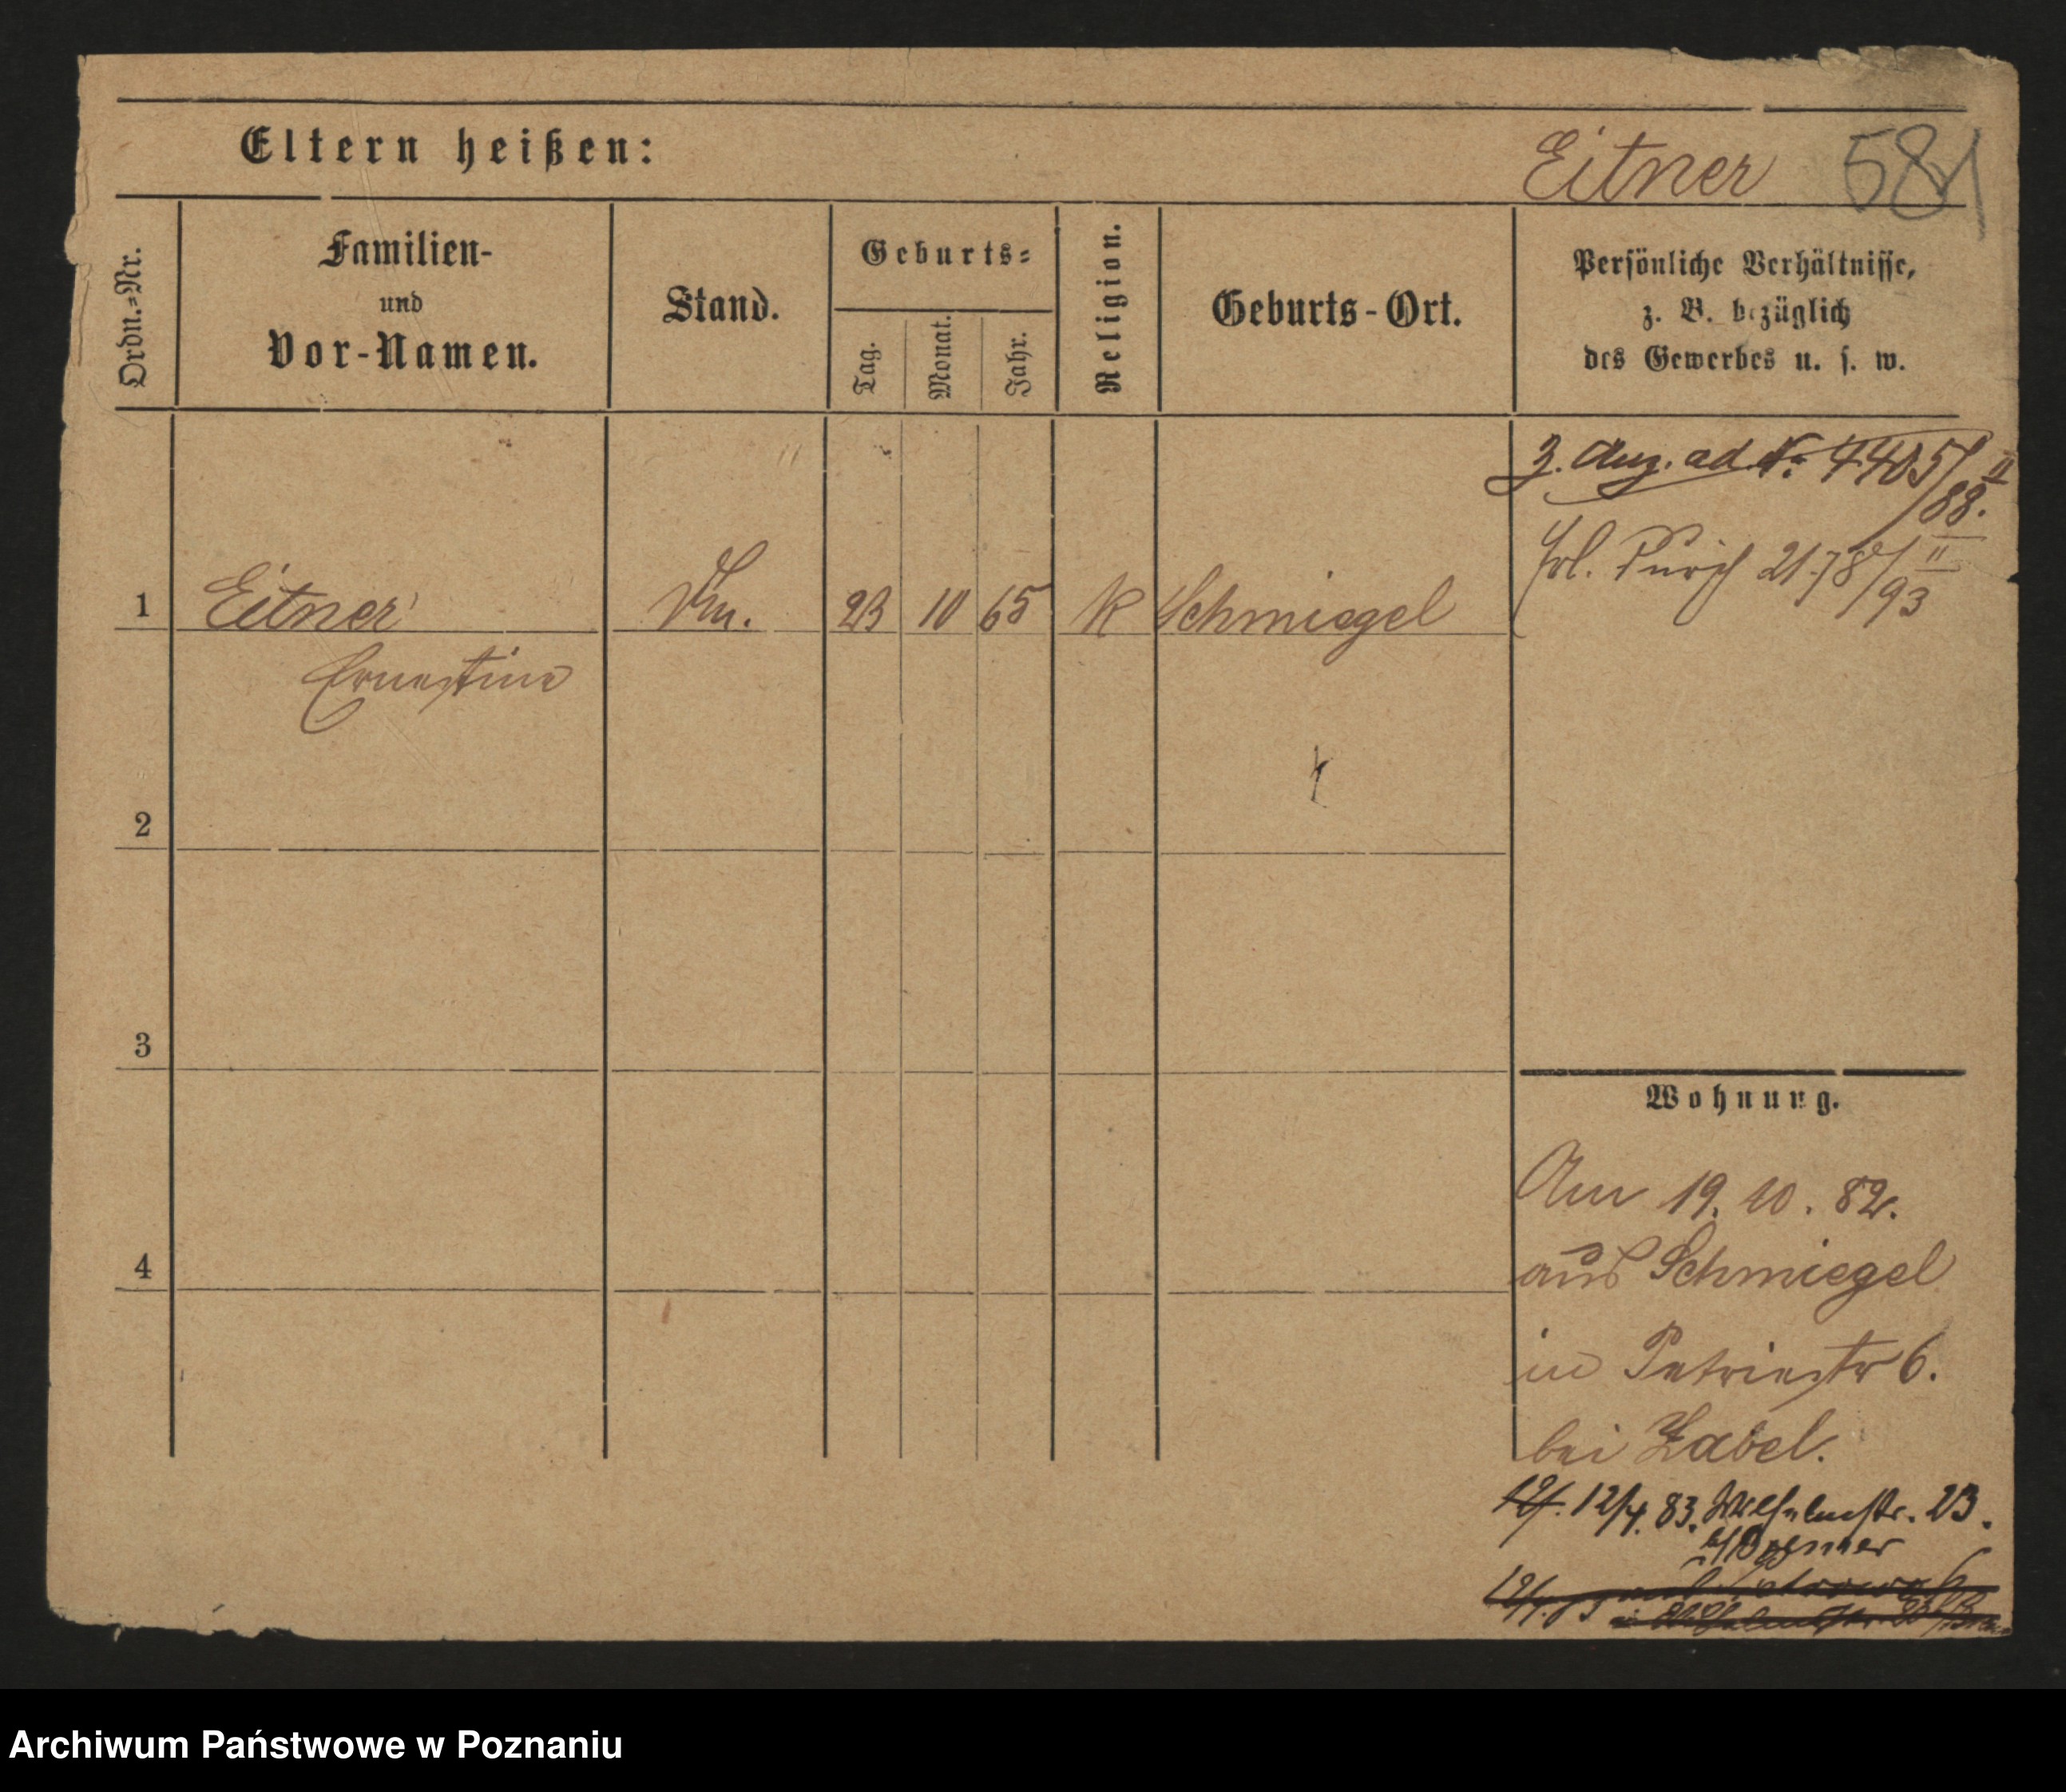 Eltern heißen:
Eitner 581
Ordn.=Nr.
Familien-
und
Vor-Namen.
Stand.
Geburts=
Tag.
Monat.
Jahr.
Religion.
Geburts-Ort.
Persönliche Verhältnisse,
z. B. bezüglich
des Gewerbes u. s. w.
z. Anz. ad. N: 4405/II
88.
II
93
1 Eitner 23 10 65 K Schmiegel
Ernestine
2
3
4
Wohnung.
Am 19. 10. 82.
aus Schmiegel
in Petristr 6.
bei Zabel.
12/4. 83. Wilhelmstr. 23.
Archiwum Państwowe w Poznaniu